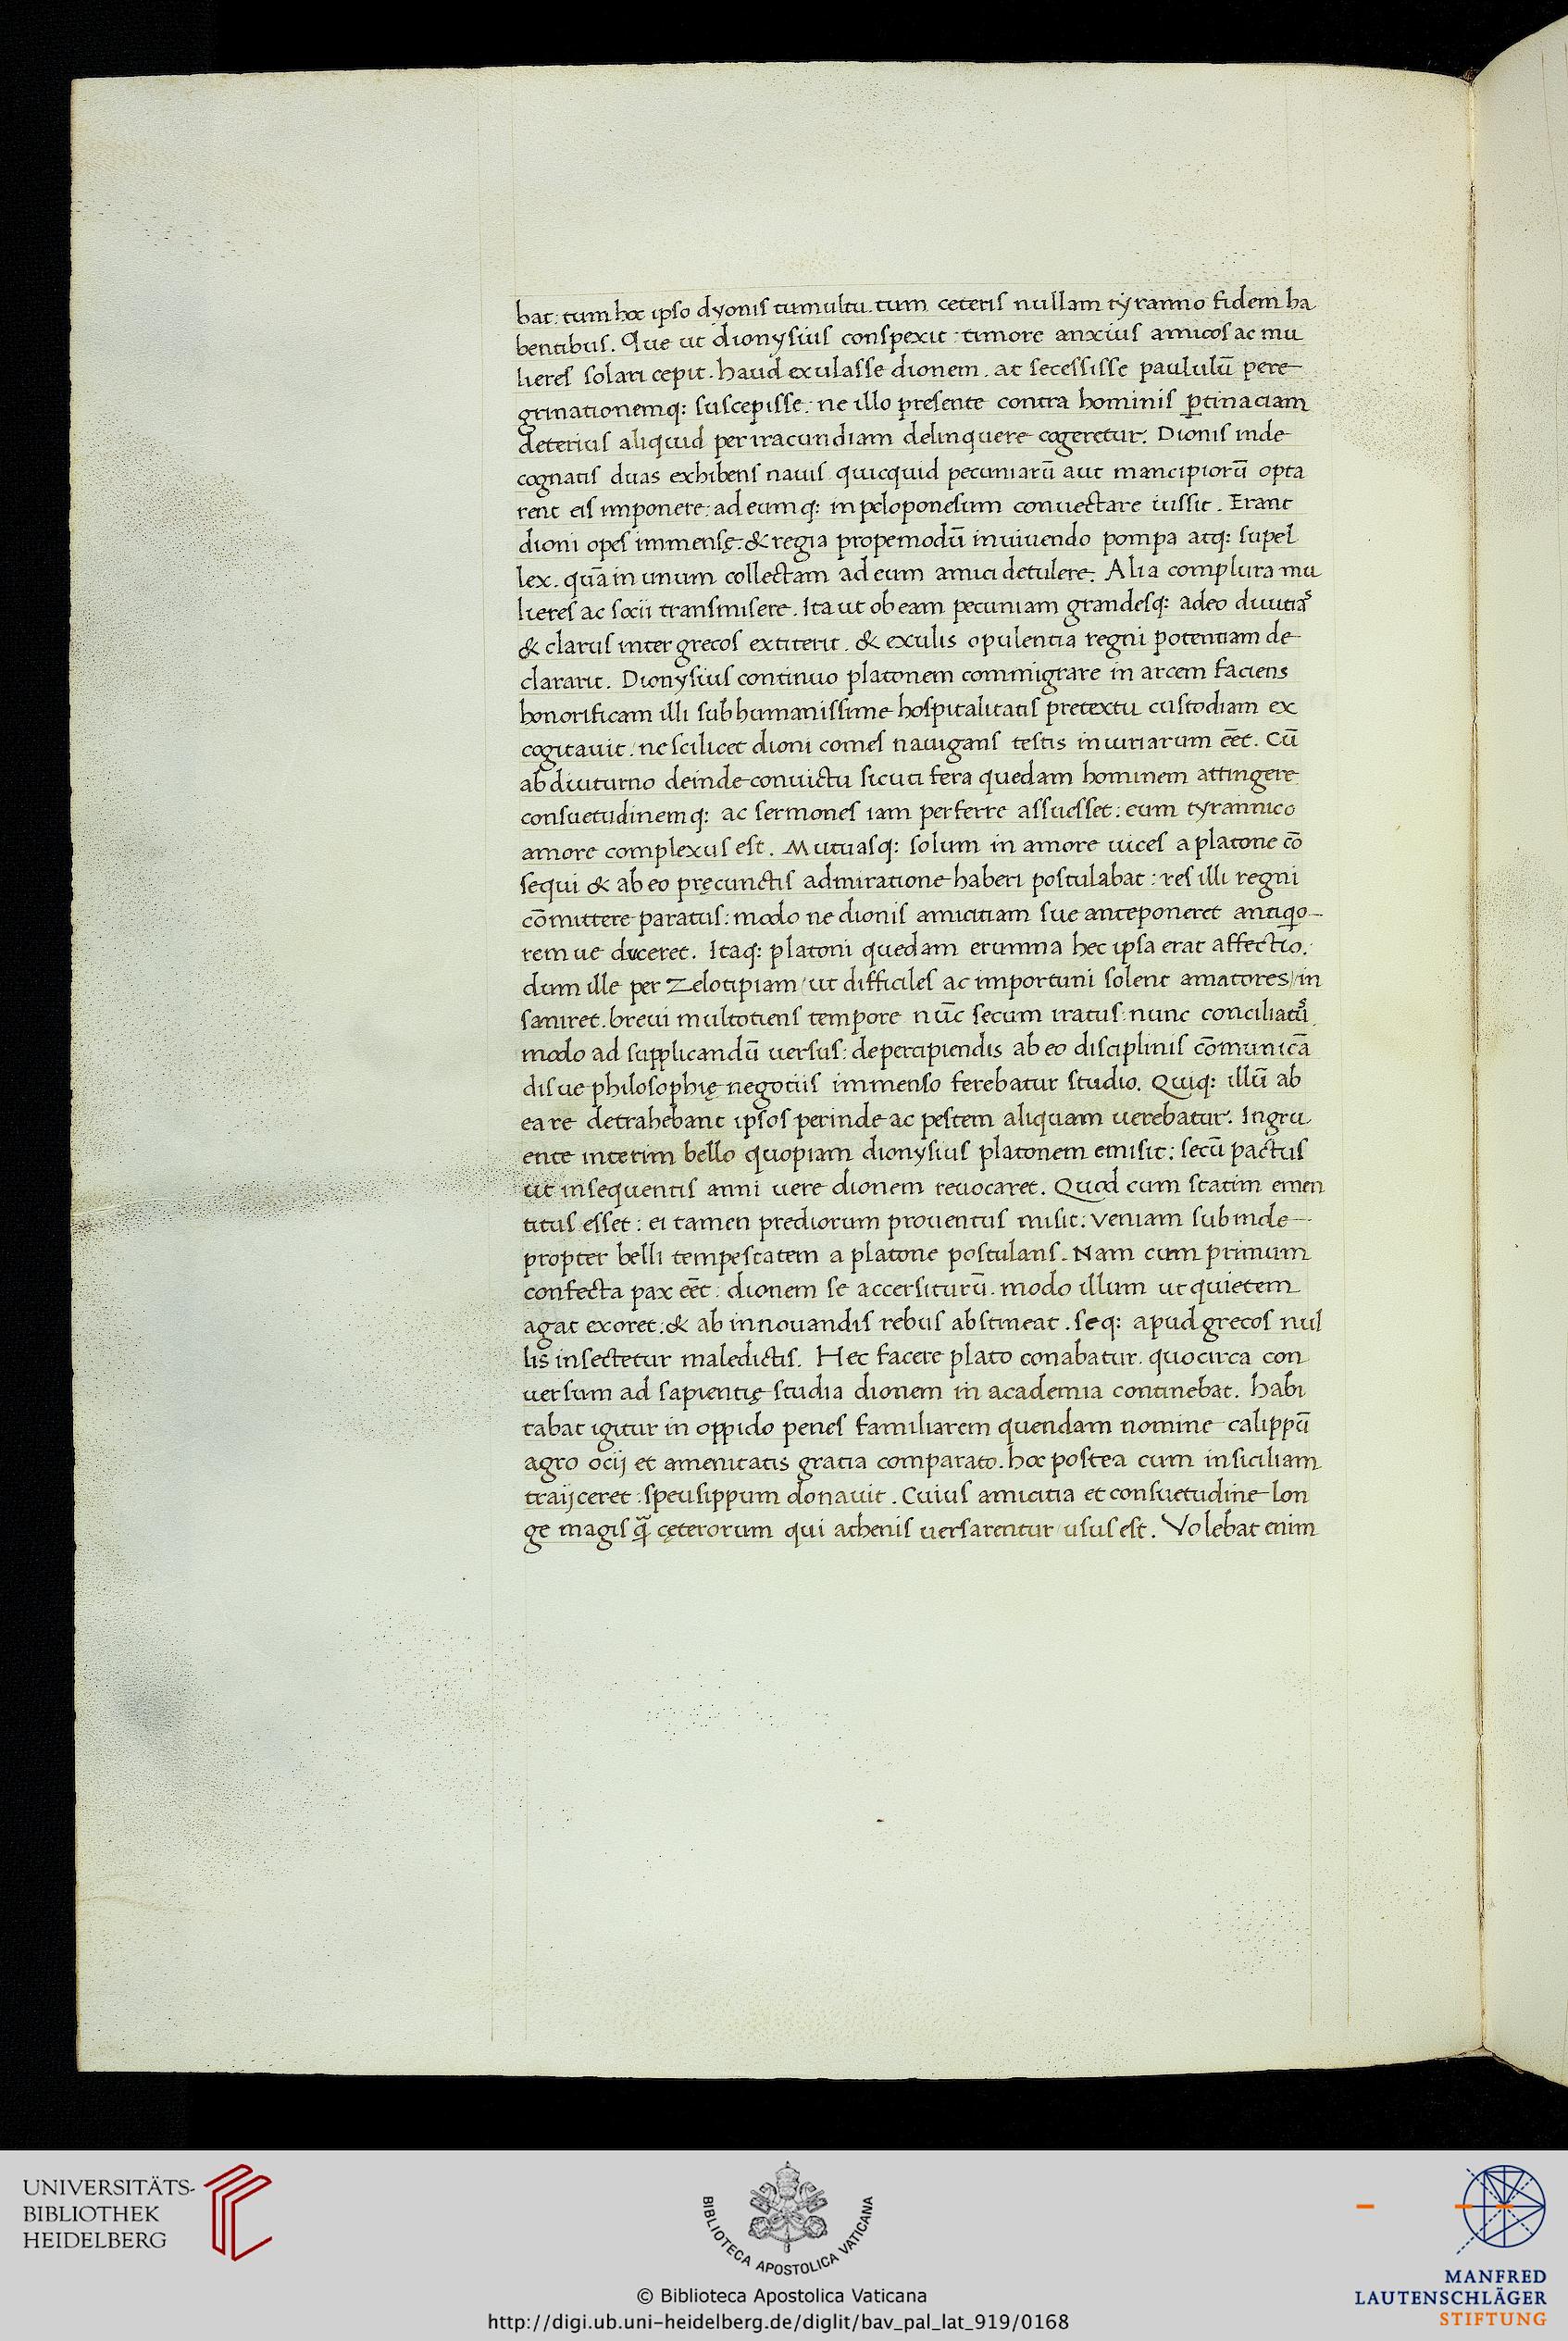 bat: tum hoc ipso dyonis tumultu. tum ceteris nullam tyranno fidem ha
bentibus. Que ut dionysius conspexit: timore anxius amicos ac mu
lieres solari cepit. haud exulasse dionem. at secessisse paululū pere
grinationemq: suscepisse: ne illo presente contra hominis ꝑtinaciam
deterius aliquid per iracundiam delinquere cogeretur. Dionis inde
cognatis duas exhibens nauis quicquid pecuniarū aut mancipiorū opta
rent eis imponere: ad eumq: in peloponesum conuectare iussit. Erant
dioni opes immensę: & regia propemodū in uiuendo pompa atq: supel
lex. quā in unum collectam ad eum amici detulere. Alia complura mu
lieres ac socii transmisere. Ita ut ob eam pecuniam grandesq: adeo diuitias
& clarus inter grecos extiterit. & exulis opulentia regni potentiam de
clararit. Dionysius continuo platonem commigrare in arcem faciens
honorificam illi sub humanissime hospitalitatis pretextu custodiam ex
cogitauit: ne scilicet dioni comes nauigans testis iniuriarum eēt. Cū
ab diuturno deinde conuictu sicuti fera quedam hominem attingere
consuetudinemq: ac sermones iam perferre assuesset: eum tyrannico
amore complexus est. Mutuasq: solum in amore uices a platone cō
sequi & ab eo pręcunctis admiratione haberi postulabat: res illi regni
cōmittere paratus: modo ne dionis amicitiam sue anteponeret antiqo
rem ue duceret. Itaq: platoni quedam erumna hec ipsa erat affectio:
dum ille per Zelotipiam/ ut difficiles ac importuni solent amatores/ in
saniret. breui multotiens tempore nūc secum iratus: nunc conciliatus
modo ad supplicandū uersus: de percipiendis ab eo disciplinis cōmunicā
dis ue philosophię negotiis immenso ferebatur studio. Quiq: illū ab
ea re detrahebant ipsos perinde ac pestem aliquam uerebatur. Ingru
ente interim bello quopiam dionysius platonem emisit: secū pactus
ut insequentis anni uere dionem reuocaret. Quod cum statim emen
titus esset: ei tamen prediorum prouentus misit: veniam subinde
propter belli tempestatem a platone postulans. Nam cum primum
confecta pax eēt: dionem se accersiturū. modo illum ut quietem
agat exoret: & ab innouandis rebus abstineat. seq: apud grecos nul
lis insectetur maledictis. Hec facere plato conabatur. quocirca con
uersum ad sapientię studia dionem in academia continebat. habi
tabat igitur in oppido penes familiarem quendam nomine calippū
agro ocij et amenitatis gratia comparato. hoc postea cum in siciliam
traijceret: speusippum donauit. Cuius amicitia et consuetudine lon
ge magis q̄ cęterorum qui athenis uersarentur/ usus est. Volebat enim
UNIVERSITÄTS-
BIBLIOTHEK
HEIDELBERG
BIBLIOTECA APOSTOLICA VATICANA
© Biblioteca Apostolica Vaticana
http://digi.ub.uni-heidelberg.de/diglit/bav_pal_lat_919/0168
MANFRED
LAUTENSCHLÄGER
STIFTUNG